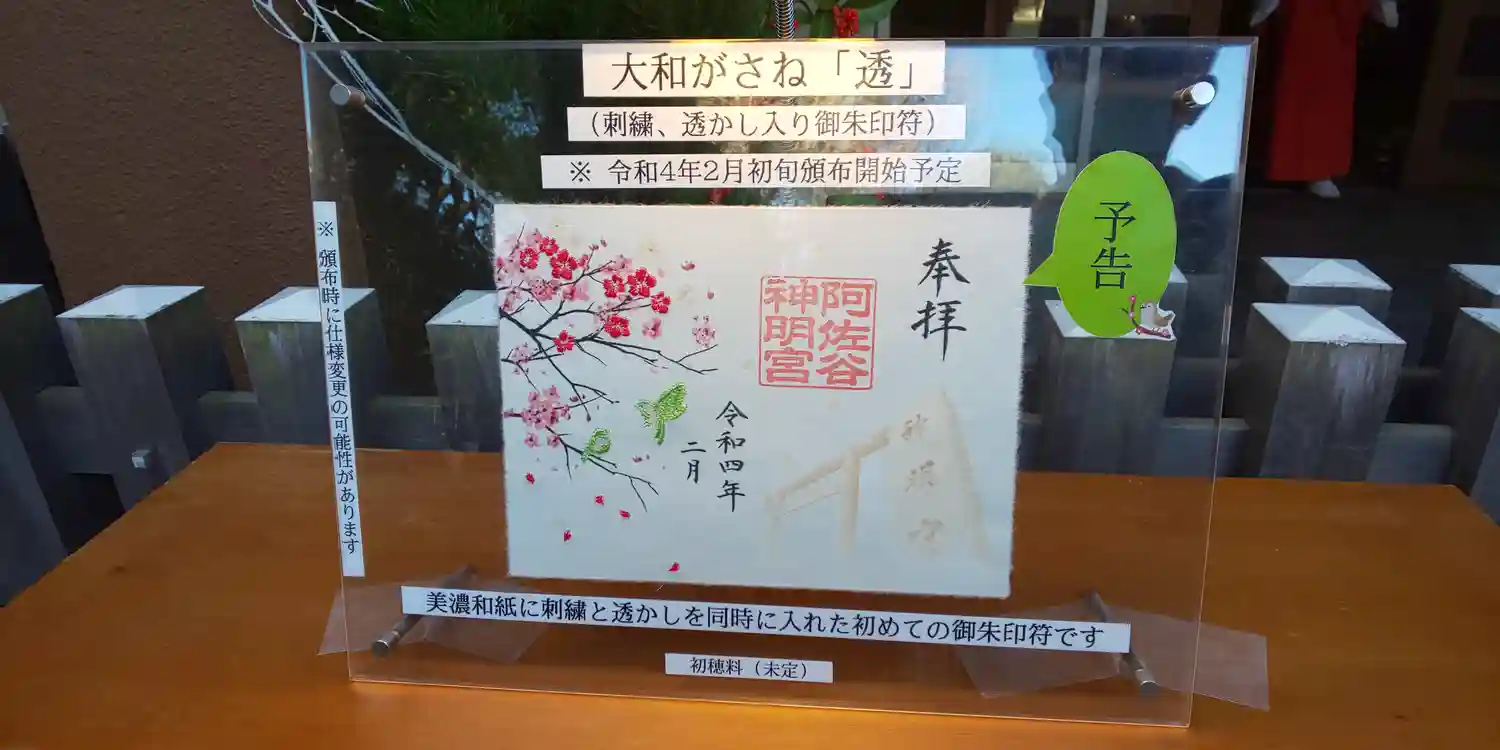 大和がさね「透」
（刺繍、透かし入り御朱印符）
※ 令和4年2月初旬頒布開始予定
予告
※ 頒布時に仕様変更の可能性があります
奉拝
阿佐谷
神明宮
令和四年
二月
美濃和紙に刺繍と透かしを同時に入れた初めての御朱印符です
初穂料（未定）